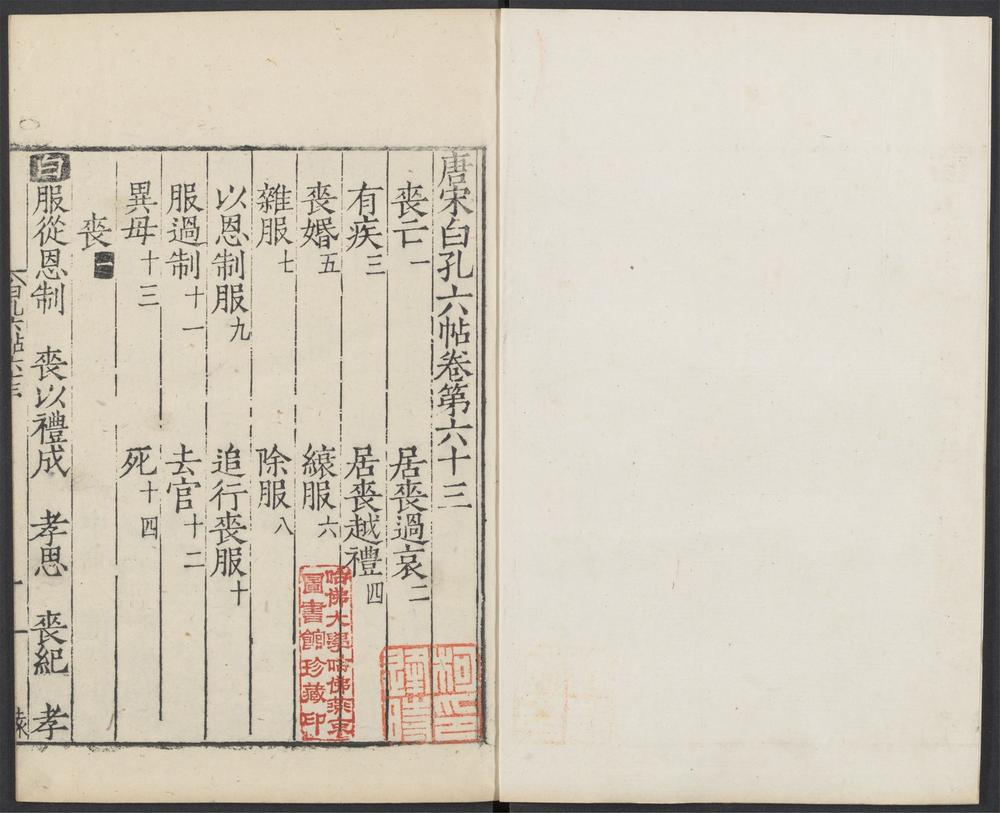 唐宋白孔六帖卷第六十三
喪亡一 居喪過哀二
有疾三 居喪越禮四
喪婚五 縗服六
雜服七 除服八
以恩制服九 追行喪服十
服過制十一 去官十二
異母十三 死十四
喪一
白 服從恩制 喪以禮成 孝思 喪紀 孝
哈佛大學哈佛燕京
圖書館珍藏印